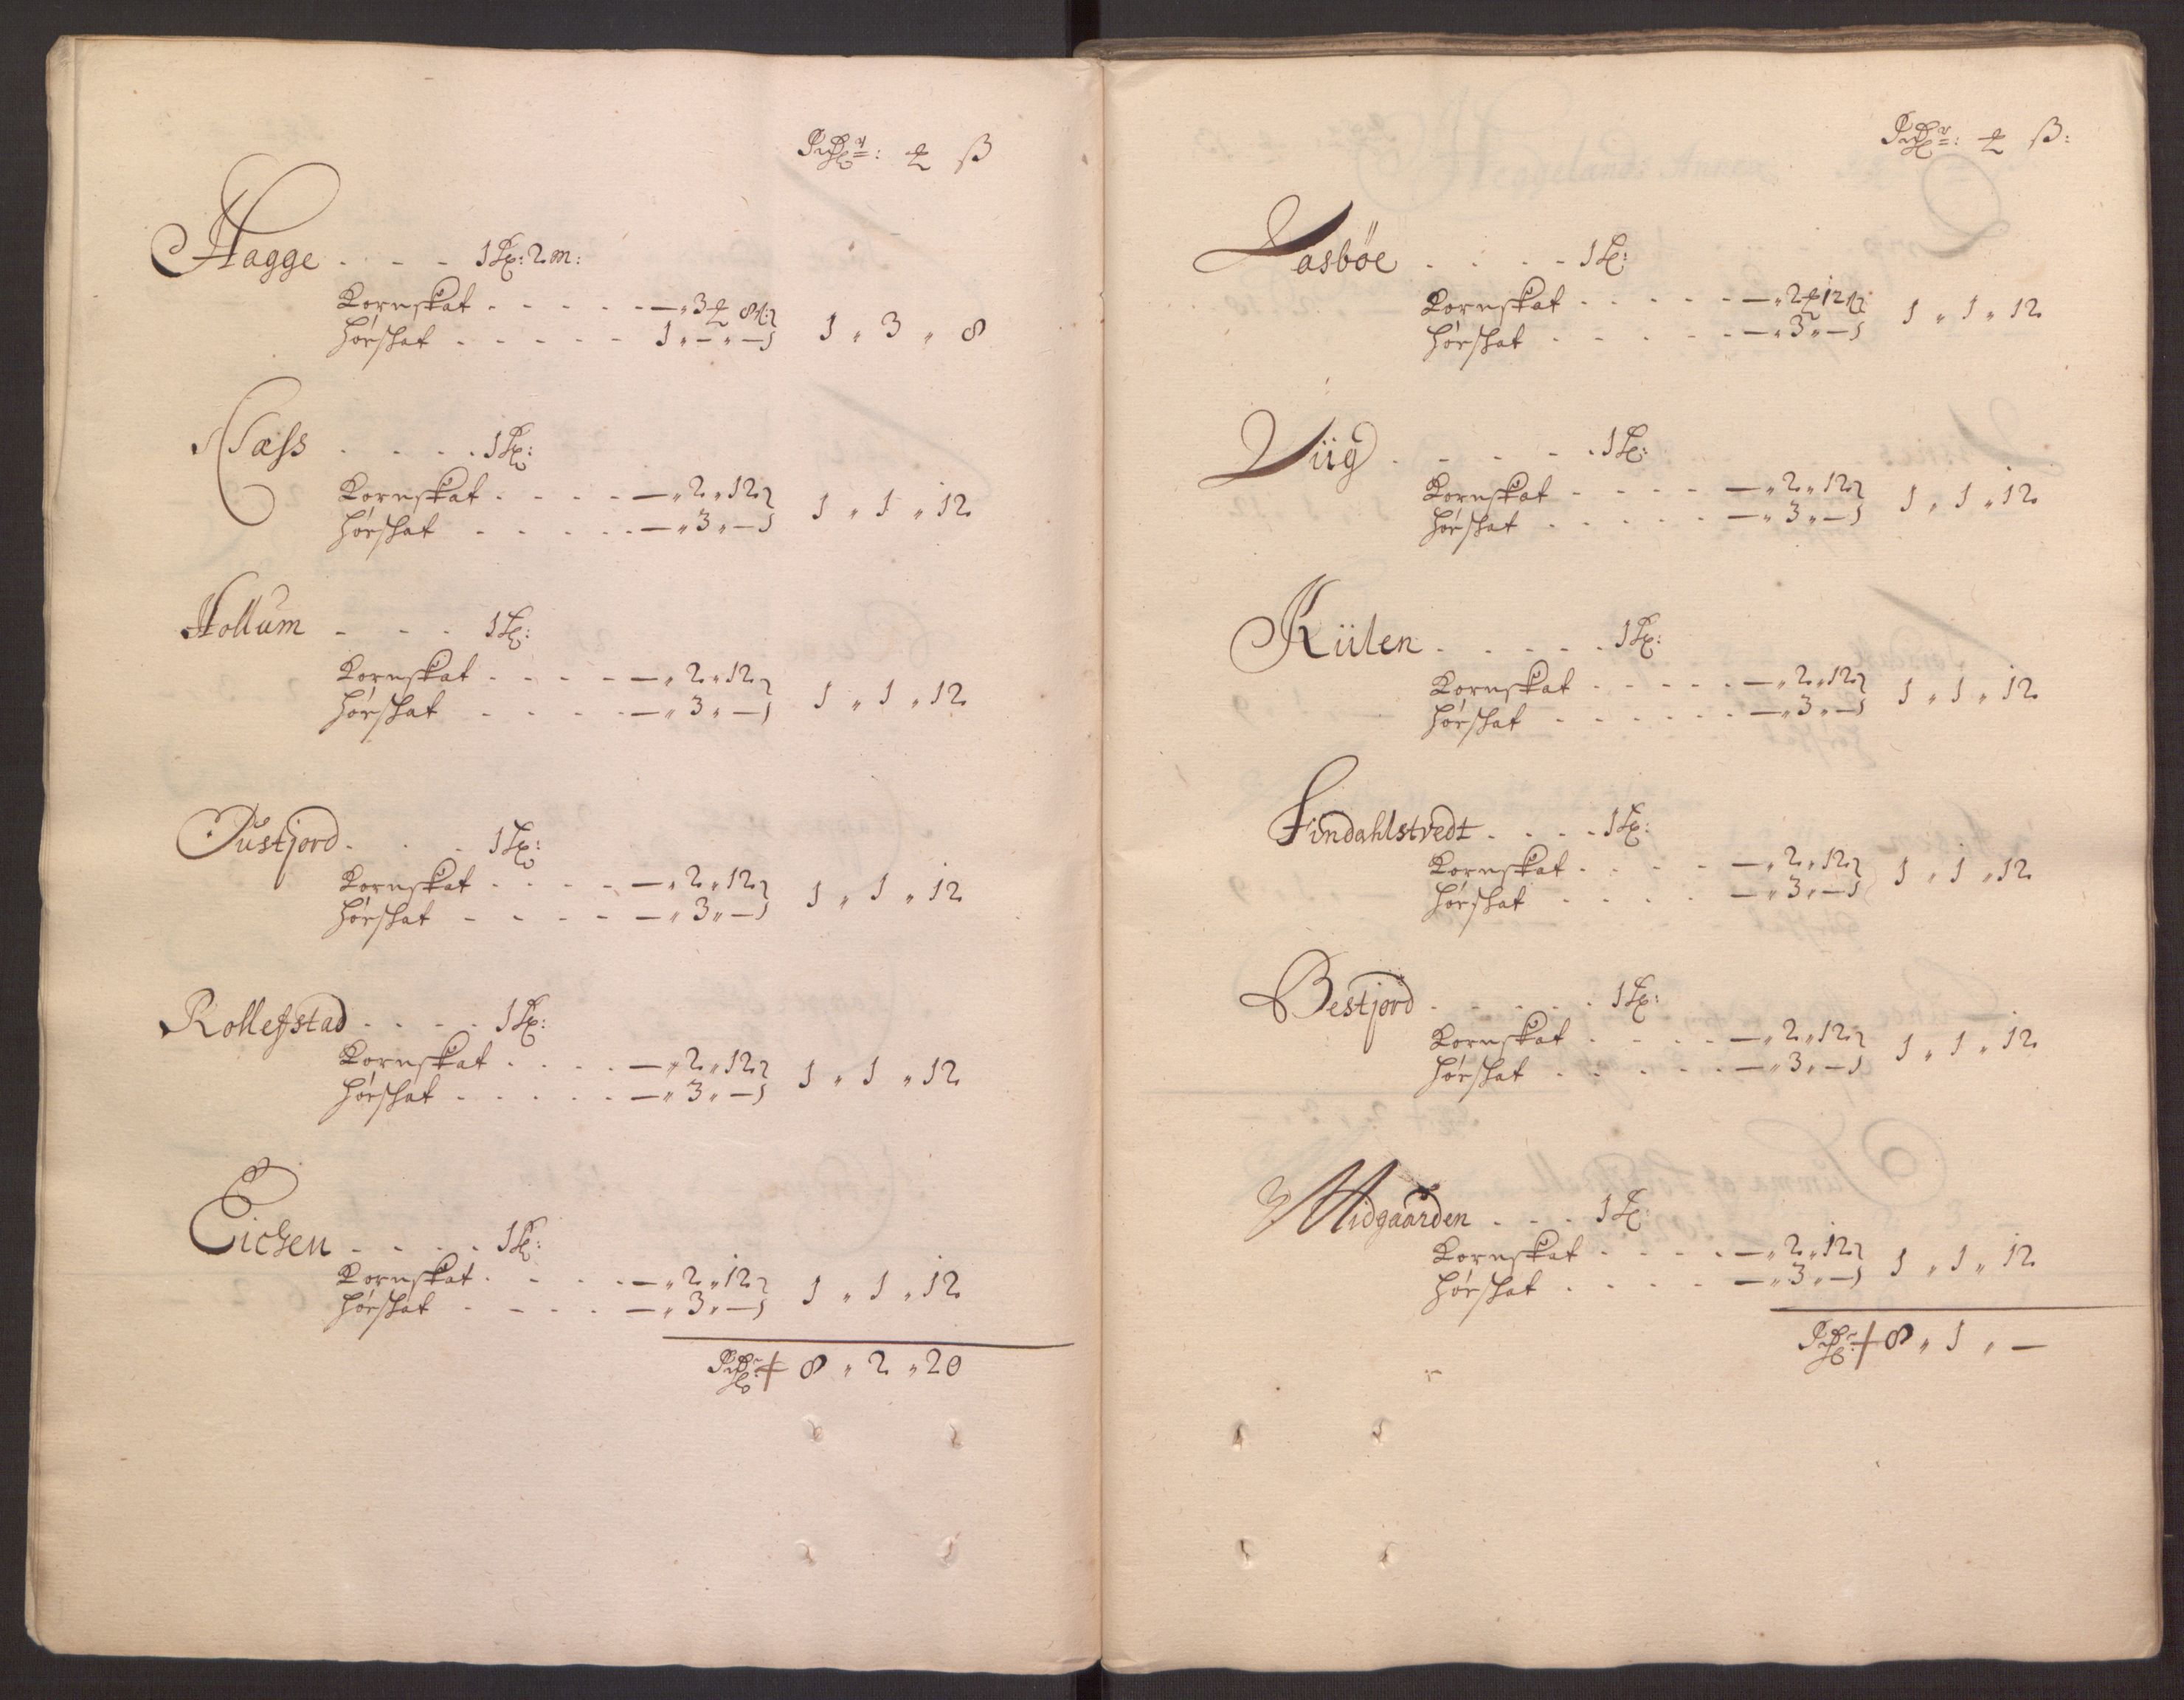 Rdr: ꝶ ß
Hagge . . . 1 Lp: 2 m:
Kornskat . . . . . — „ 3 ꝶ 8 ß
Hörskat . . . . . 1 „ — „ — 1 „ 3 „ 8
Næss . . . . 1 Lp:
Kornskat . . . . — „ 2 „ 12
Hörskat . . . . . — „ 3 „ — 1 „ 1 „ 12
Hollum . . . 1 Lp:
Kornskat . . . . — „ 2 „ 12
Hörskat . . . . — „ 3 „ — 1 „ 1 „ 12
Tustjord . . . 1 Lp:
Kornskat . . . . — „ 2 „ 12
Hörskat . . . . — „ 3 „ — 1 „ 1 „ 12
Rollefstad . . . . 1 Lp:
Kornskat . . . . — „ 2 „ 12
Hörskat . . . . . — „ 3 „ — 1 „ 1 „ 12
Eichen . . . . 1 Lp:
Kornskat . . . . — „ 2 „ 12
Hörskat . . . . — „ 3 „ — 1 „ 1 „ 12
Rdr: 8 „ 2 „ 20
Rdr: ꝶ ß:
Aasböe . . . . 1 Lp:
Kornskat . . . . . — „ 2 ꝶ 12 ß
Hörskat . . . . . — „ 3 „ — 1 „ 1 „ 12
Viig . . . . . 1 Lp:
Kornskat . . . . — „ 2 „ 12
Hörskat . . . . . — „ 3 „ — 1 „ 1 „ 12
Kiilen . . . . . 1 Lp:
Kornskat . . . . . — „ 2 „ 12
Hörskat . . . . . . — „ 3 „ — 1 „ 1 „ 12
Findahlstvedt . . . . 1 Lp:
Kornskat . . . . — „ 2 „ 12
Hörskat . . . . — „ 3 „ — 1 „ 1 „ 12
Bestjord . . . . . 1 Lp:
Kornskat . . . . — „ 2 „ 12
Hörskat . . . . . — „ 3 „ — 1 „ 1 „ 12
Midgaarden . . . 1 Lp:
Kornskat . . . . — „ 2 „ 12
Hörskat . . . . — „ 3 „ — 1 „ 1 „ 12
Rdr: 8 „ 1 „ —